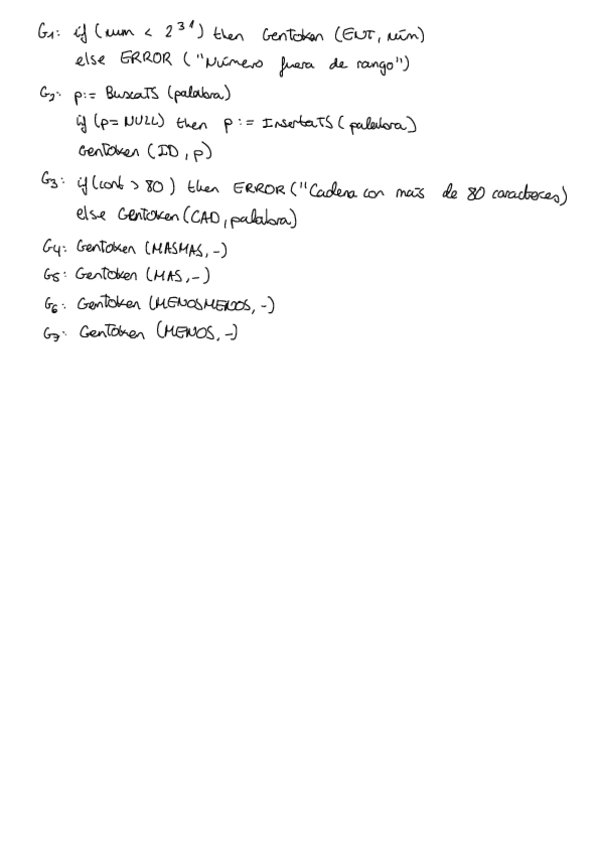 G1: if (num < 2^31) then GenToken (ENT, núm)
else ERROR ("Número fuera de rango")
G2: p:= BuscaTS (palabra)
if (p= NULL) then p:= InsertaTS (palabra)
GenToken (ID, p)
G3: if (cont > 80) then ERROR ("Cadena con más de 80 caracteres)
else GenToken (CAD, palabra)
G4: GenToken (MASMAS, -)
G5: GenToken (MAS, -)
G6: GenToken (MENOSMENOS, -)
G7: GenToken (MENOS, -)